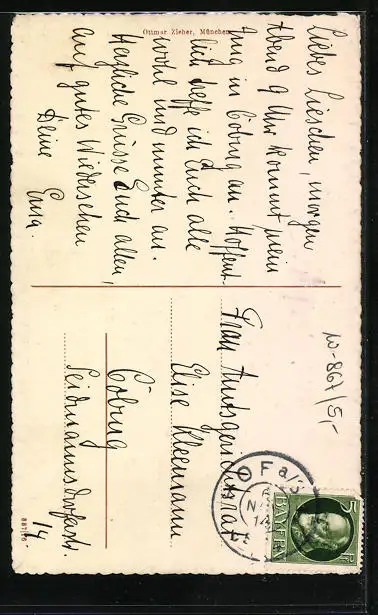 Ottmar Zieher, München
Liebes Lieschen, morgen
Abend 9 Uhr kommt mein
Zug in Coburg an. Hoffent-
lich treffe ich Euch alle
wohl und munter an.
Herzliche Grüsse Euch allen,
auf gutes Wiedersehen
Deine
Erna.
Frau Amtsgerichtsrat
Elise Kleemann
Coburg
14
w-867/5,-
BAYERN
5